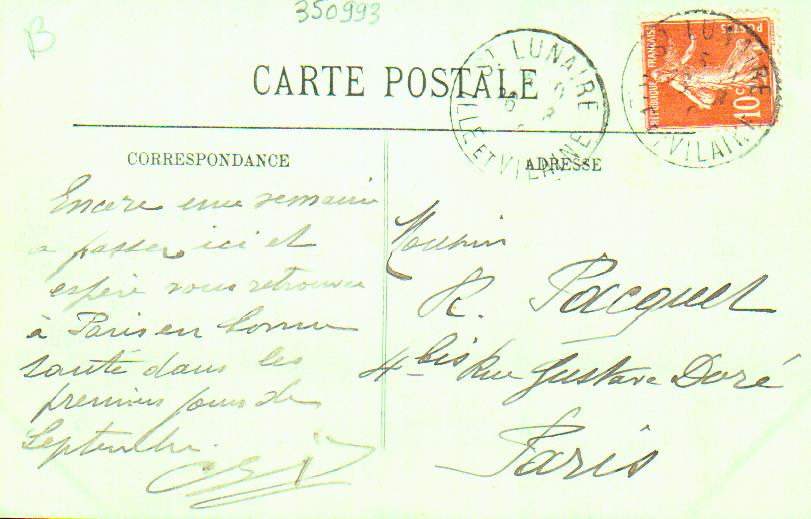 B
350993
CARTE POSTALE
ST LUNAIRE
ILLE ET VILAINE
REPUBLIQUE FRANÇAISE
POSTES
10c
CORRESPONDANCE
Encore une semaine
a passer ici et
espère vous retrouver
à Paris en bonne
santé dans les
premiers jours de
Septembre.
ADRESSE
Monsieur
R. Pacquet
4 bis Rue Gustave Doré
Paris